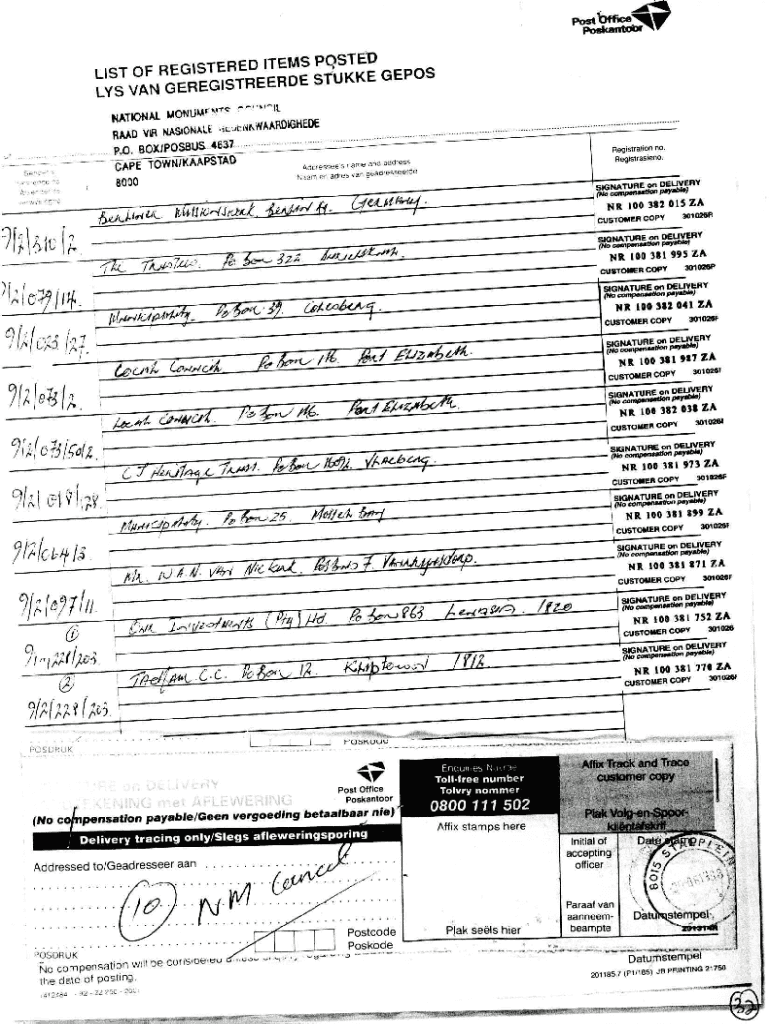 Post Office
Poskantoor
LIST OF REGISTERED ITEMS POSTED
LYS VAN GEREGISTREERDE STUKKE GEPOS
NATIONAL MONUMENTS COUNCIL
RAAD VIR NASIONALE GEDENKWAARDIGHEDE
P.O. BOX/POSBUS 4637
CAPE TOWN/KAAPSTAD
8000
Addressee's name and address
Naam en adres van geadresseerde
Registration no.
Registrasieno.
Germany.
SIGNATURE on DELIVERY
(No compensation payable)
NR 100 382 015 ZA
CUSTOMER COPY 301026R
9/2/310/2
The Trustees. Po Box 322
SIGNATURE on DELIVERY
(No compensation payable)
NR 100 381 995 ZA
CUSTOMER COPY 301026P
9/2/079/14
Municipality Po Box 39 Colesberg
SIGNATURE on DELIVERY
(No compensation payable)
NR 100 382 041 ZA
CUSTOMER COPY 301026F
9/2/023/27
Local Council Po Box 116 Port Elizabeth
SIGNATURE on DELIVERY
(No compensation payable)
NR 100 381 987 ZA
CUSTOMER COPY 301026F
9/2/073/2
Local Council Po Box 116. Port Elizabeth
SIGNATURE on DELIVERY
(No compensation payable)
NR 100 382 038 ZA
CUSTOMER COPY 301026F
9/2/073/50/2
CT Heritage Trust. Po Box 16092 Vlaeberg
SIGNATURE on DELIVERY
(No compensation payable)
NR 100 381 973 ZA
CUSTOMER COPY 301026F
9/2/018/128
Municipality Po Box 25 Mossel Bay
SIGNATURE on DELIVERY
(No compensation payable)
NR 100 381 899 ZA
CUSTOMER COPY 301026F
9/2/064/3
Mr. W.A.N. van Niekerk. Posbus 7. Vanrhynsdorp
SIGNATURE on DELIVERY
(No compensation payable)
NR 100 381 871 ZA
CUSTOMER COPY 301026F
9/2/097/11
① Investments (Pty) Ltd Po Box 863 Lenasia 1820
SIGNATURE on DELIVERY
(No compensation payable)
NR 100 381 752 ZA
CUSTOMER COPY 301026
9/2/228/203
② C.C. Po Box 12 Kliptown 1812
SIGNATURE on DELIVERY
(No compensation payable)
NR 100 381 770 ZA
CUSTOMER COPY 301026F
9/2/228/203
POSDRUK
POSKODE
on DELIVERY
met AFLEWERING
Post Office
Poskantoor
(No compensation payable/Geen vergoeding betaalbaar nie)
Delivery tracing only/Slegs afleweringsporing
Addressed to/Geadresseer aan
⑩ N.M Council
Postcode
Poskode
POSDRUK
No compensation will be considered
the date of posting.
Toll-free number
Tolvry nommer
0800 111 502
Affix stamps here
Plak seëls hier
Affix Track and Trace
customer copy
Plak Volg-en-Spoor-
kliëntafskrif
Initial of
accepting
officer
Paraaf van
aanneem-
beampte
Date stamp
8015 STADPLEIN
Datumstempel
Datumstempel
201185.7 (P1/185) JB PRINTING 21756
32